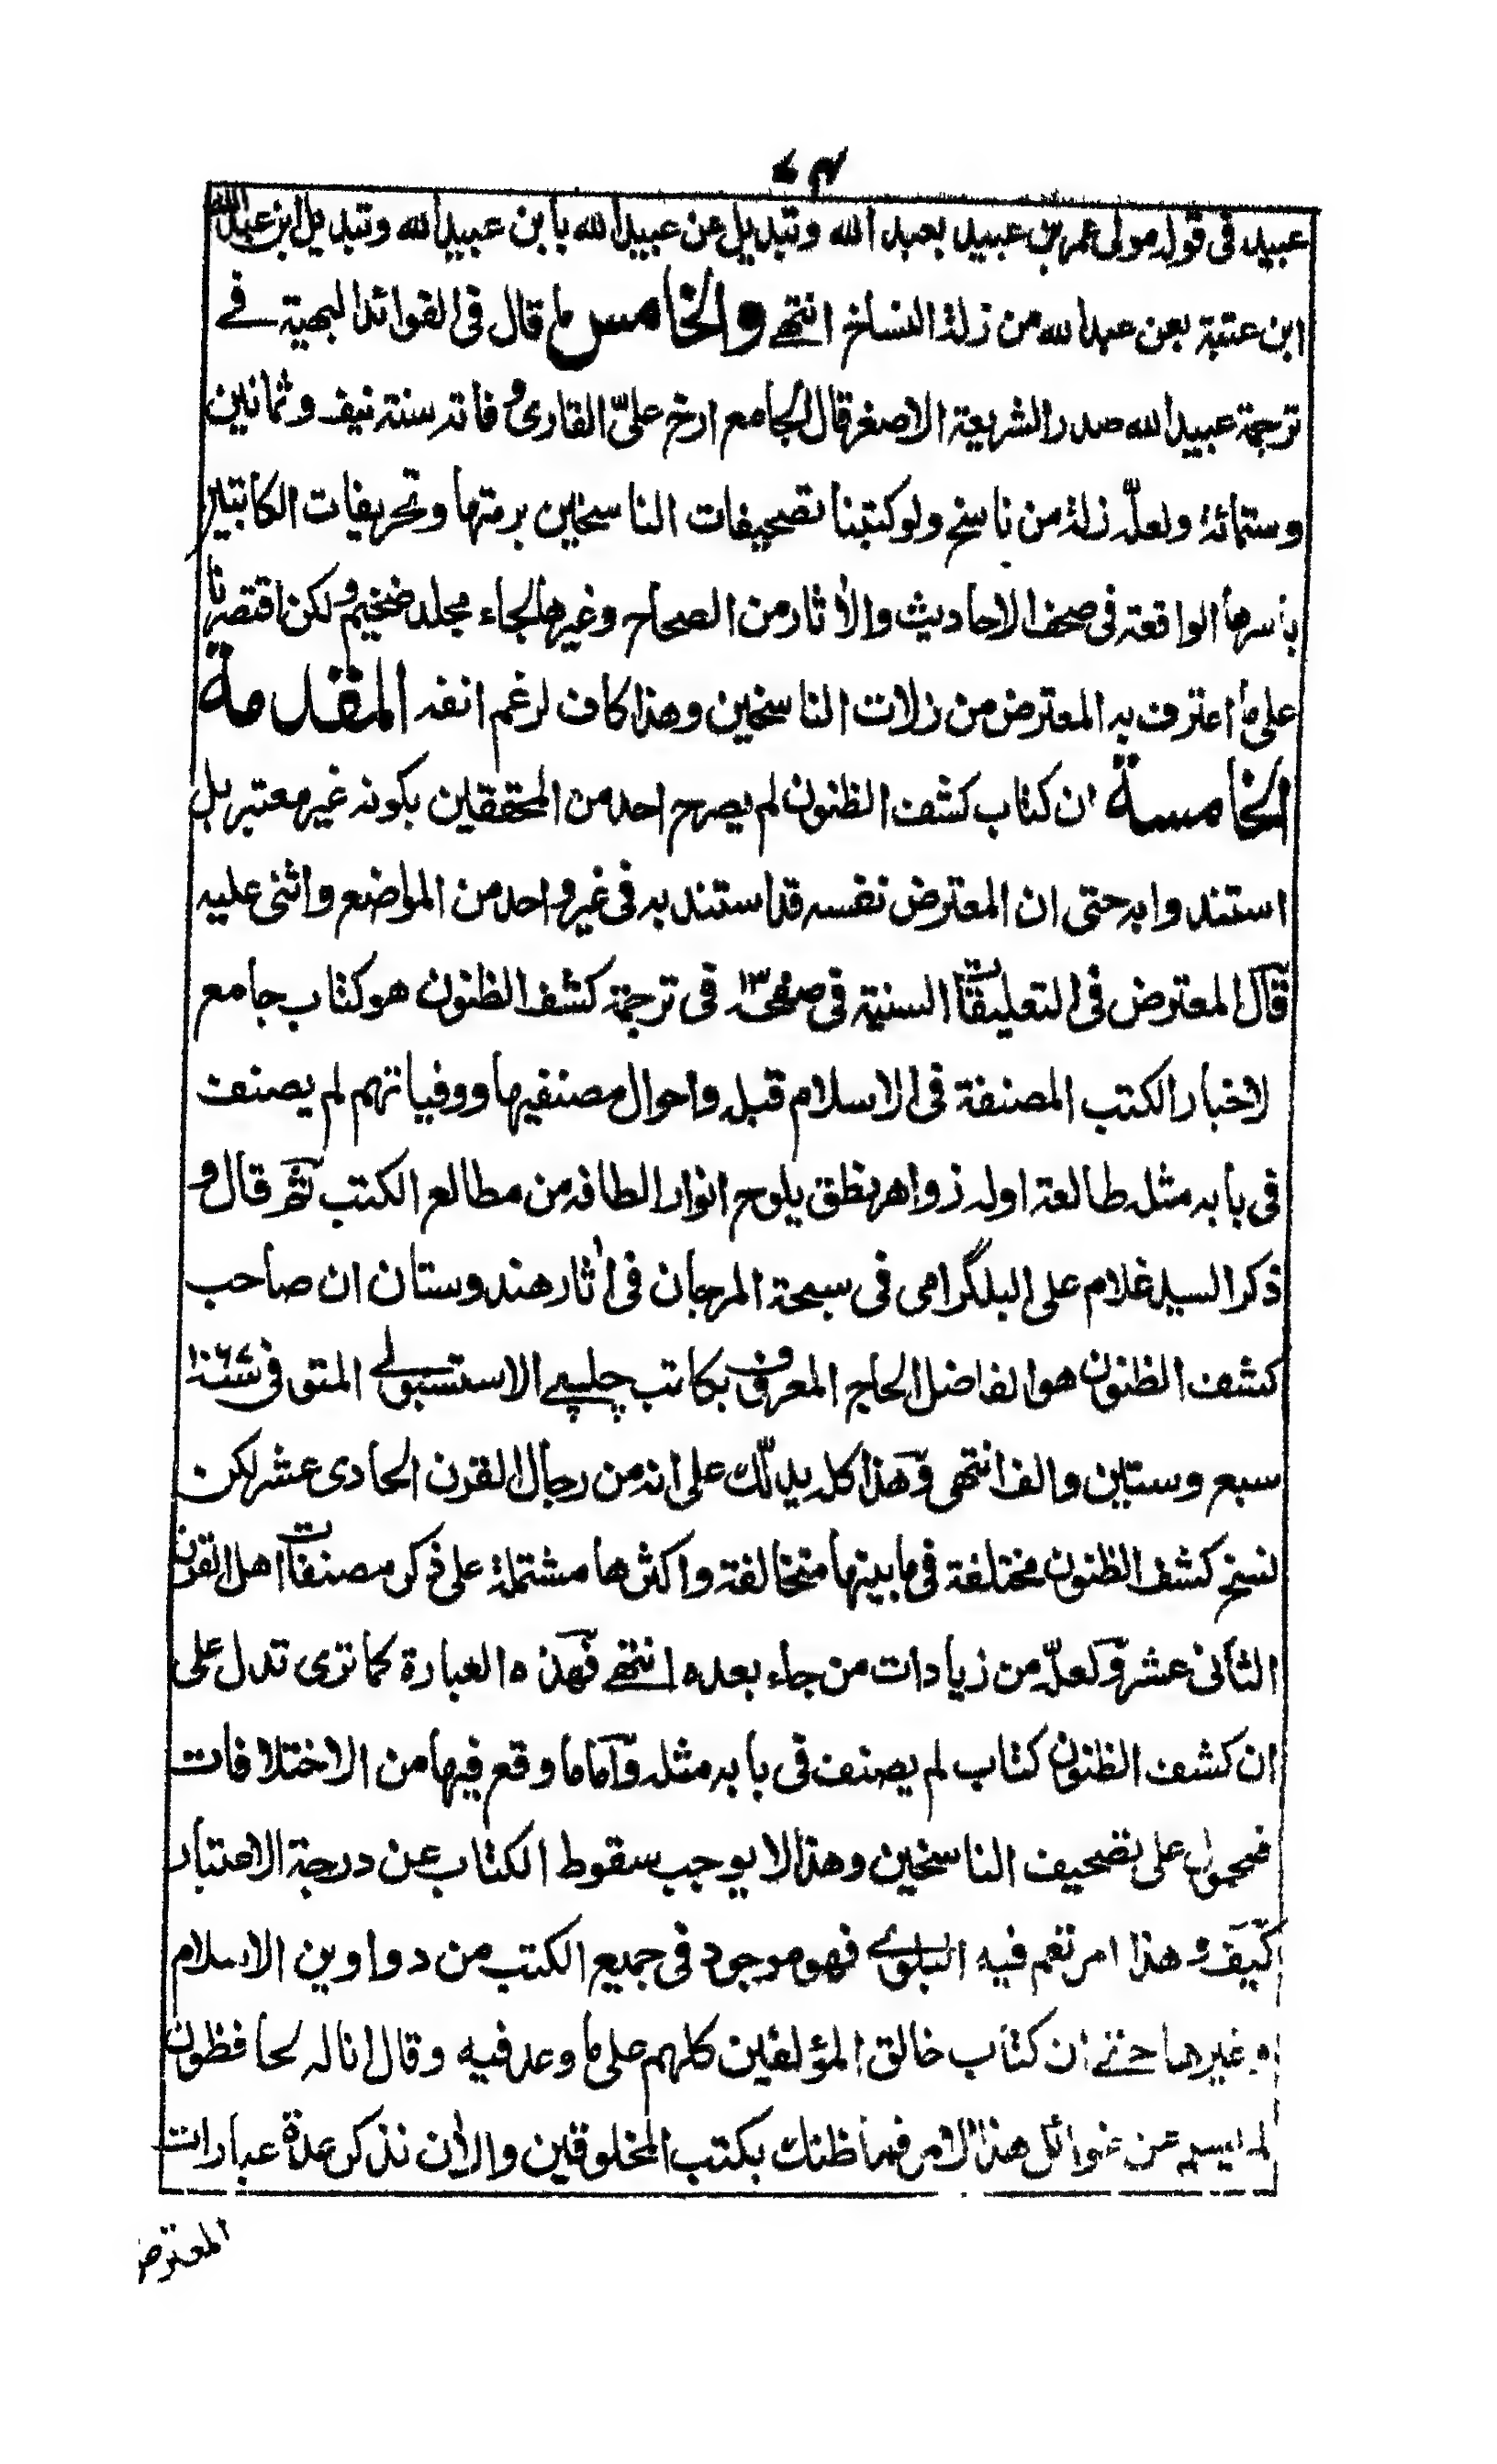 ٧٤
عبيد فى قوله مولى عمر بن عبيد بعبد الله وتبديل عن عبيد الله بابن عبيد الله وتبديل ابن عبد الله
ابن عتبة بعن عبد الله من زلة النساخ انتهى والخامس ما قال فى الفوائد البهية فى
ترجمة عبيد الله صدر الشريعة الاصغر قال الجامع ارخ علىّ القارى وفاته سنة نيف وثمانين
وستمائة ولعلّه زلة من ناسخ ولو كتبنا تصحيفات الناسخين برمتها وتحريفات الكاتبين
باسرها الواقعة فى صحف الاحاديث والأثار من الصحاح وغيرها لجاء مجلد ضخيم ولكن اقتصرنا
على ما اعترف به المعترض من زلات الناسخين وهذا كاف لرغم انفه المقدمة
الخامسة ان كتاب كشف الظنون لم يصرح احد من المحققين بكونه غير معتبر بل
استندوا به حتى ان المعترض نفسه قد استند به فى غير واحد من المواضع واثنى عليه
قال المعترض فى التعليقات السنية فى صفحه ١٣ فى ترجمة كشف الظنون هو كتاب جامع
لاخبار الكتب المصنفة فى الاسلام قبله واحوال مصنفيها ووفياتهم لم يصنف
فى بابه مثله طالعته اوله زواهر نطق يلوح انوار الطافه من مطالع الكتب ثم قال و
ذكر السيد غلام على البلگرامى فى سبحة المرجان فى أثار هندوستان ان صاحب
كشف الظنون هو الفاضل الحاج المعروف بكاتب چلپے الاستنبولے المتوفى سنة ١٠٦٧
سبع وستين والف انتهى وهذا كله يدلّك على انه من رجال القرن الحادى عشر لكن
نسخ كشف الظنون مختلفة فى ما بينها متخالفة واكثرها مشتملة على ذكر مصنفات اهل القرن
الثانى عشر ولعلّه من زيادات من جاء بعده انتهى فهذه العبارة كما ترى تدل على
ان كشف الظنون كتاب لم يصنف فى بابه مثله واما ما وقع فيها من الاختلافات
فمحمول على تصحيف الناسخين وهذا لا يوجب سقوط الكتاب عن درجة الاعتبار
كيف وهذا امر تعم فيه البلوے فهو موجود فى جميع الكتب من دواوين الاسلام
وغيرها حتے ان كتاب خالق المؤلفين كلهم على ما وعد فيه وقال انا له لحافظون
لم يسلم عن غوائل هذا الامر فما ظنك بكتب المخلوقين والأن نذكر عدة عبارات
المعترض